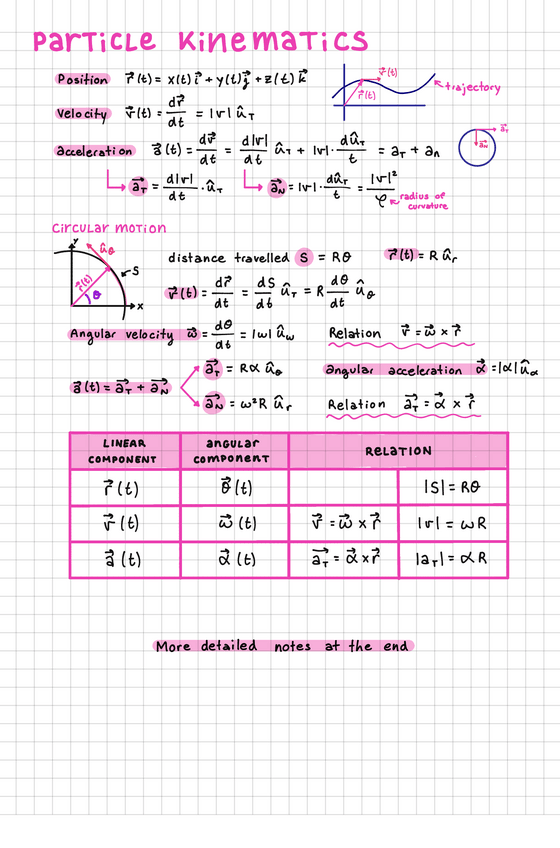 Particle Kinematics
Position r⃗(t) = x(t) i⃗ + y(t) j⃗ + z(t) k⃗
v⃗(t)
r⃗(t)
trajectory
Velocity v⃗(t) = dr⃗/dt = |v| û_T
acceleration a⃗(t) = dv⃗/dt = d|v|/dt û_T + |v|· dû_T/t = a_T + a_n
a⃗_T
a⃗_N
a⃗_T = d|v|/dt · û_T
a⃗_N = |v|· dû_T/t = |v|²/ρ
radius of
curvature
Circular motion
y
û_θ
r⃗(t)
S
θ
x
distance travelled S = Rθ r⃗(t) = R û_r
v⃗(t) = dr⃗/dt = dS/dt û_T = R dθ/dt û_θ
Angular velocity ω⃗ = dθ/dt = |ω| û_ω
Relation v⃗ = ω⃗ × r⃗
a⃗(t) = a⃗_T + a⃗_N
a⃗_T = Rα û_θ
a⃗_N = ω²R û_r
angular acceleration α⃗ = |α| û_α
Relation a⃗_T = α⃗ × r⃗
LINEAR COMPONENT
angular component
RELATION
r⃗(t) θ⃗(t) |S| = Rθ
v⃗(t) ω⃗(t) v⃗ = ω⃗ × r⃗ |v| = ωR
a⃗(t) α⃗(t) a⃗_T = α⃗ × r⃗ |a_T| = αR
More detailed notes at the end